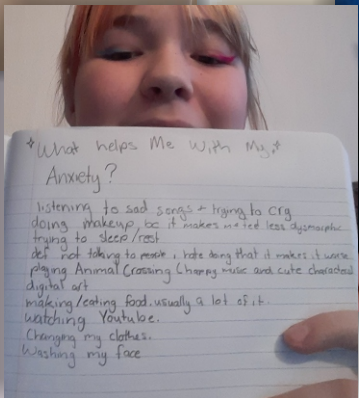 What helps Me With My
Anxiety?
listening to sad songs + trying to cry
doing makeup, bc it makes me feel less dysmorphic
trying to sleep/rest
def not talking to people i hate doing that it makes it worse
playing Animal Crossing (happy music and cute characters)
digital art
making/eating food. usually a lot of it.
watching Youtube.
Changing my clothes.
Washing my face